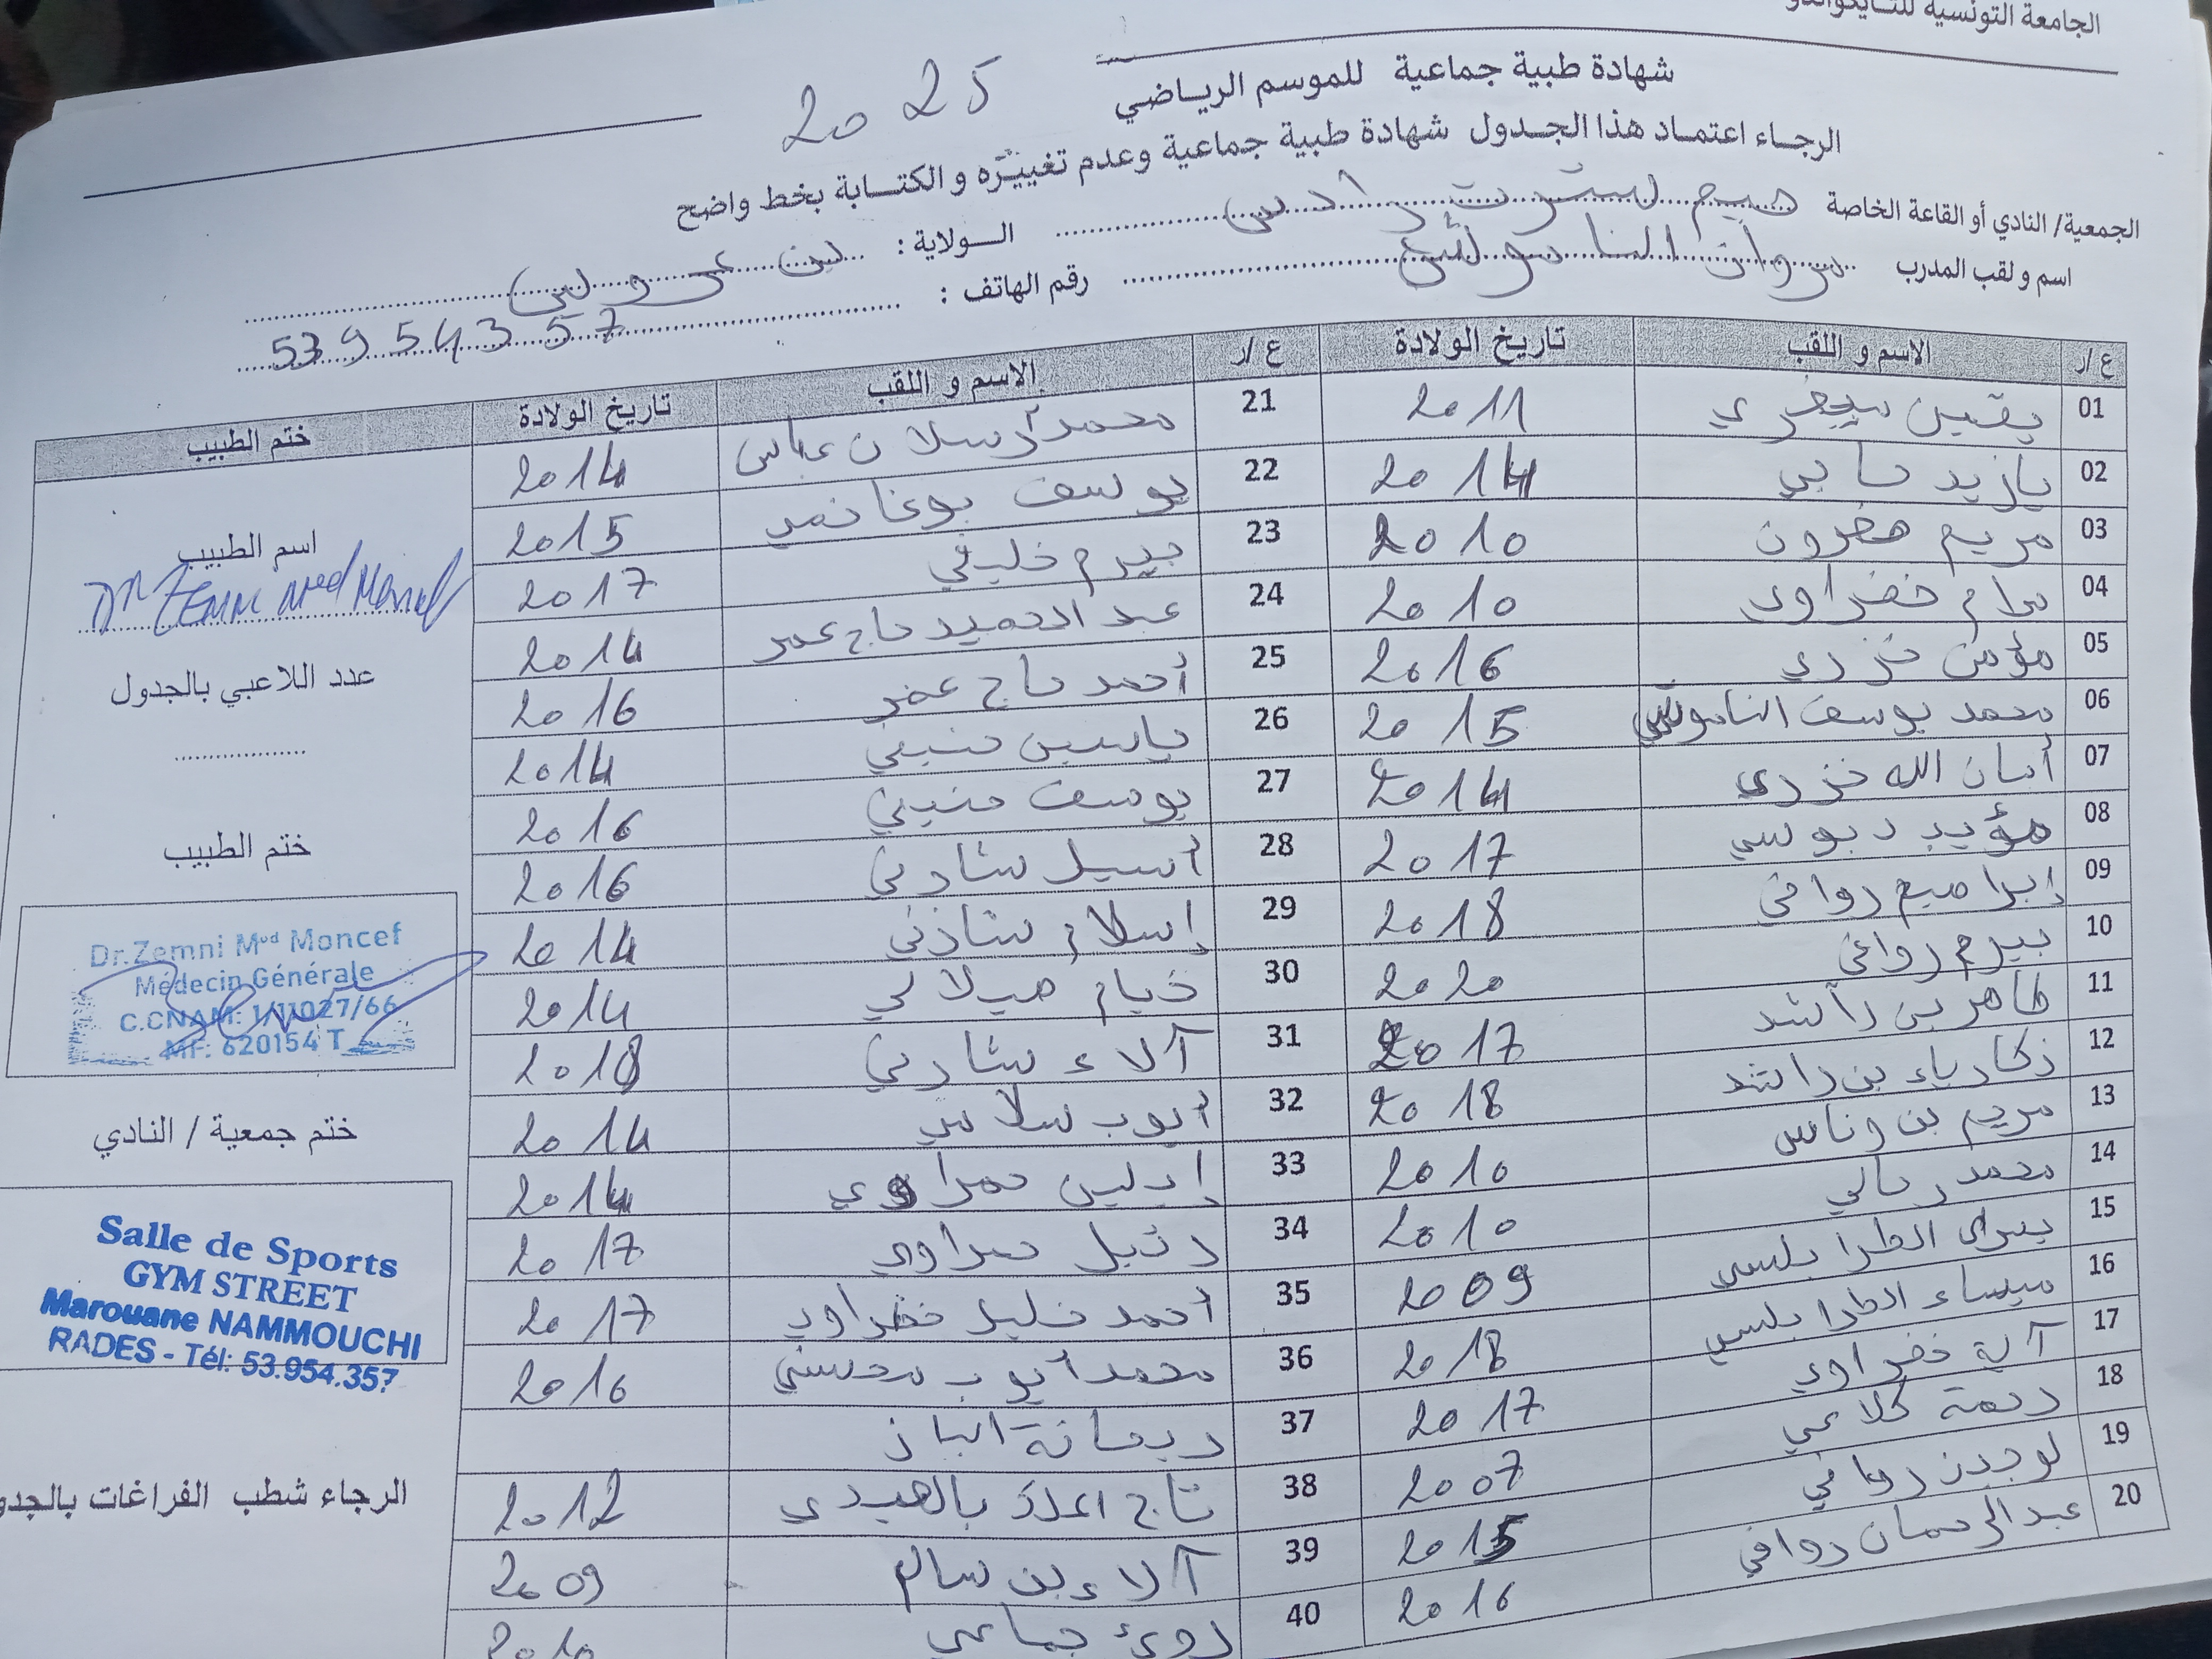 الجامعة التونسية للتايكواندو
شهادة طبية جماعية للموسم الرياضي 2025
الرجاء اعتماد هذا الجدول شهادة طبية جماعية وعدم تغييره والكتابة بخط واضح
الجمعية/ النادي أو القاعة الخاصة جيم ستريت رادس الولاية : بن عروس
اسم و لقب المدرب مروان الناموشي رقم الهاتف : 53954357
ع/ر الاسم و اللقب تاريخ الولادة ع/ر الاسم و اللقب تاريخ الولادة ختم الطبيب
01 يقين 2011 21 محمد أرسلان عباس 2014
02 يازيد حابي 2014 22 يوسف بوغانمي 2015
03 مريم 2010 23 بيرم خليفي 2017
04 مرام خضراوي 2010 24 عبد الحميد حاج عمر 2014
05 مؤمن خزري 2016 25 أحمد حاج عمر 2016
06 محمد يوسف الناموشي 2015 26 ياسين حنيني 2014
07 أمان الله خزري 2014 27 يوسف حنيني 2016
08 مؤيد دبوسي 2017 28 أسيل شارني 2016
09 إبراهيم روافي 2018 29 إسلام شارني 2014
10 بيرم روافي 2020 30 خيام هيلالي 2014
11 طاهر بن راشد 2017 31 آلاء شارني 2018
12 زكارياء بن راشد 2018 32 أيوب سلامي 2014
13 مريم بن وناس 2010 33 إيلين حمراوي 2014
14 محمد رحالي 2010 34 حمراوي 2017
15 الطرابلسي 2009 35 أحمد خليل خضراوي 2017
16 ميساء الطرابلسي 2018 36 محمد أيوب محسني 2016
17 آية خضراوي 2017 37 ريحانة الباز
18 ريمة كلاعي 2007 38 تاج الملك بالهيدي 2012
19 لوجين روافي 2015 39 آلاء بن سالم 2009
20 عبد الرحمان روافي 2016 40 روئ جماعي 2010
اسم الطبيب
Dr Zemni Med Moncef
عدد اللاعبي بالجدول
ختم الطبيب
Dr.Zemni Med Moncef
Médecin Générale
C.CNAM: 1/11027/66
MF: 620154 T
ختم جمعية / النادي
Salle de Sports
GYM STREET
Marouane NAMMOUCHI
RADES - Tél: 53.954.357
الرجاء شطب الفراغات بالجدو